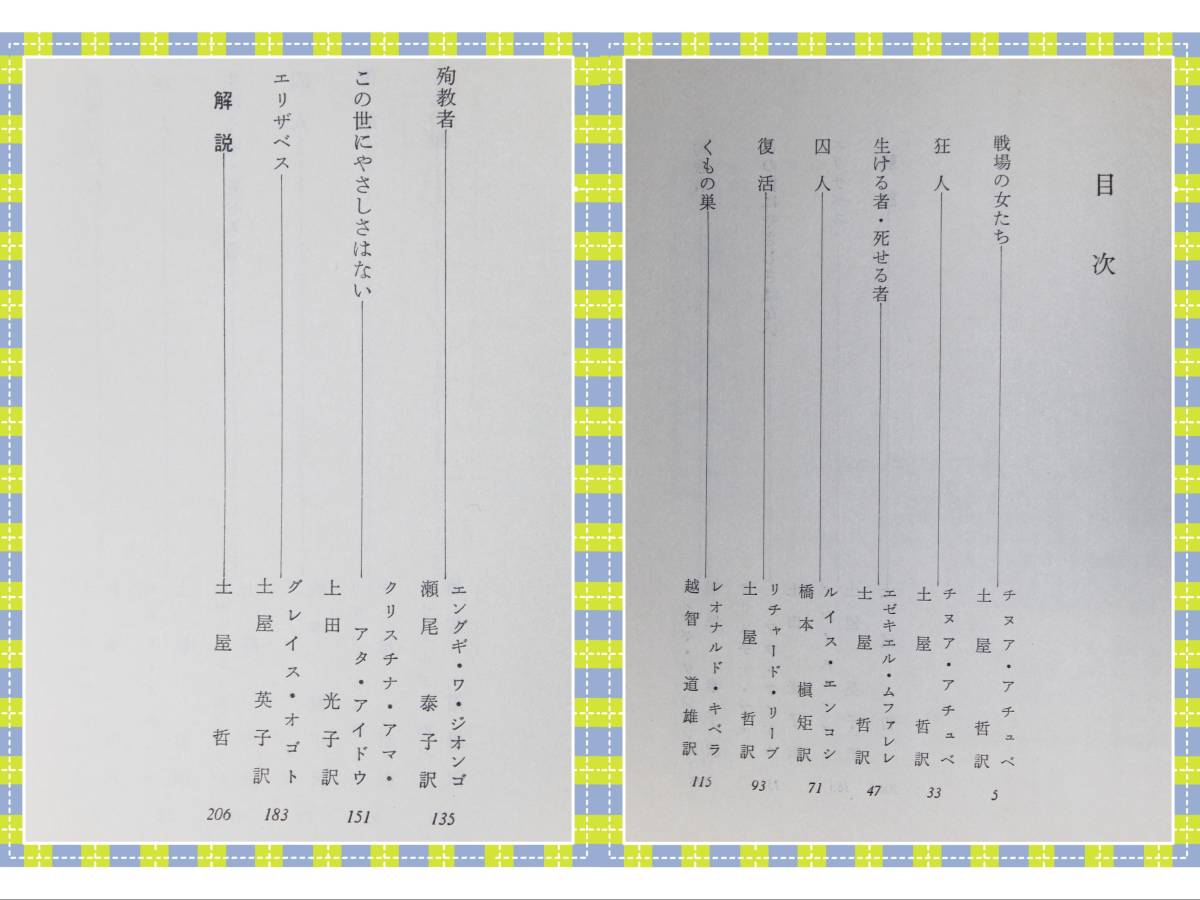 目次
戦場の女たち
チヌア・アチュベ
土屋哲訳
5
狂人
チヌア・アチュベ
土屋哲訳
33
生ける者・死せる者
エゼキエル・ムファレレ
土屋哲訳
47
囚人
ルイス・エンコシ
橋本槇矩訳
71
復活
リチャード・リーブ
土屋哲訳
93
くもの巣
レオナルド・キベラ
越智道雄訳
115
殉教者
エングギ・ワ・ジオンゴ
瀬尾泰子訳
135
この世にやさしさはない
クリスチナ・アマ・
アタ・アイドウ
上田光子訳
151
エリザベス
グレイス・オゴト
土屋英子訳
183
解説
土屋哲
206